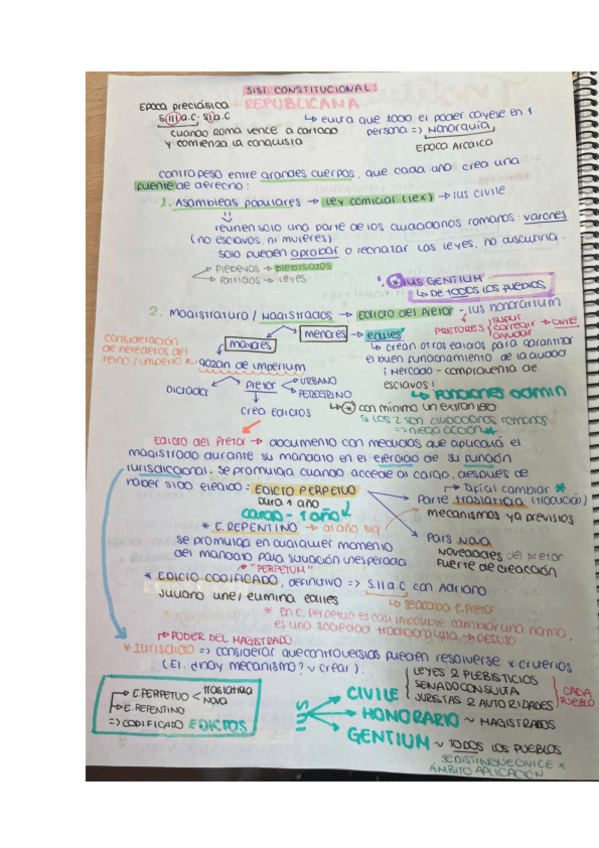 SISI. CONSTITUCIONAL:
Epoca preclásica - REPUBLICANA
S(III)a.C; S(I)a.C
↳ evita que todo el poder cayese en 1
persona => Monarquía
EPOCA ARCAICA
cuando Roma vence a cartago
y comienza la conquista
contrapeso entre grandes cuerpos, que cada uno crea una
fuente de derecho:
1. Asambleas populares → Ley comicial (lex) → ius civile
reunen sólo una parte de los ciudadanos romanos: varones
(no esclavos, ni mujeres)
solo pueden aprobar o rechazar las leyes, no discutirla.
Plebeyos → plebiscitos
→ Leyes
* IUS GENTIUM
↳ DE TODOS LOS PUEBLOS
2. Magistratura / Magistrados → Edicto del Pretor - ius honorarium
PRETORES { suplir corregir ayudar → civile
consideración
de herederos del
reino / imperio
mayores
menores → ediles
gozan de imperium
↳ crean otros edictos para garantizar
el buen funcionamiento de la ciudad
¡Mercado - compraventa de
esclavos!
↳ FUNCIONES ADMIN
Dictador
Pretor
URBANO
PEREGRINO
↳ * con mínimo un extranjero
si los 2 son ciudadanos romanos
=> niega acción *
crea Edictos
Edicto del Pretor → documento con medidas que aplicará el
magistrado durante su mandato en el ejercicio de su función
jurisdiccional. Se promulga cuando accede al cargo, después de
haber sido elegido = EDICTO PERPETUO
dura 1 año
cargo - 1 año
→ Difícil cambiar *
Parte traslaticia (tradición)
mecanismos ya previstos
* E. REPENTINO → al año
se promulga en cualquier momento
del mandato para situación inesperada
Pars Nova
novedades del pretor
fuerte de creación
"PERPETUM"
* EDICTO CODIFICADO, definitivo => S.II a.C con Adriano
Juliano une / elimina ediles
↳ se acaba E. Pretor
* En E. Perpetuo es casi imposible cambiar una norma,
es una sociedad tradicionalista.
→ PODER DEL MAGISTRADO
* Iurisdictio => considerar que controversias pueden resolverse x criterios
(EJ. ¿hay mecanismo? ~ crear).
→ E. PERPETUO < traslaticia
nova
→ E. REPENTINO
=> CODIFICADO EDICTOS
SIHI
CIVILE
LEYES 2 PLEBISCITOS
SENADOCONSULTA
JURISTAS 2 AUTORIDADES
CADA
PUEBLO
HONORARIO ~ MAGISTRADOS
GENTIUM ~ TODOS LOS PUEBLOS
ÁMBITO APLICACIÓN